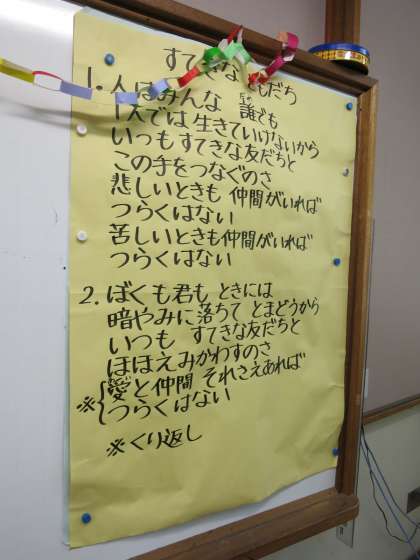 すてきな ともだち
1. 人はみんな 誰でも
1人では生きていけないから
いつもすてきな友だちと
この手をつなぐのさ
悲しいときも 仲間がいれば
つらくはない
苦しいときも仲間がいれば
つらくはない
2. ぼくも君も ときには
暗やみに落ちて とまどうから
いつも すてきな友だちと
ほほえみかわすのさ
※{愛と仲間 それさえあれば
つらくはない
※くり返し